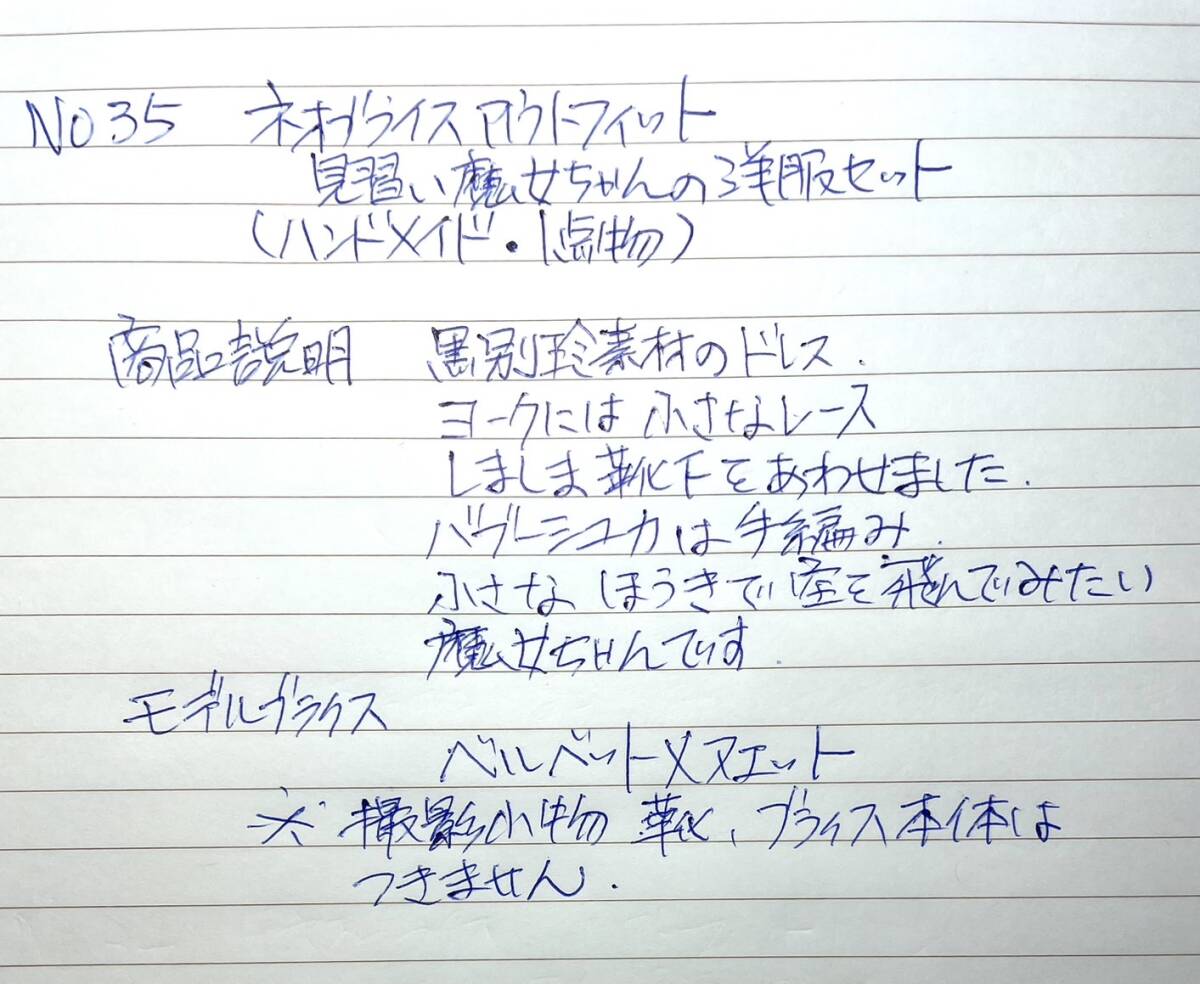 NO35 ネオブライスアウトフィット
見習い魔女ちゃんの洋服セット
（ハンドメイド・1点物）
商品説明 黒別珍素材のドレス.
ヨークには小さなレース
しましま靴下をあわせました.
バブーシュカは手編み.
小さなほうきで空を飛んでみたい
魔女ちゃんです.
モデルブライス
ベルベットメヌエット
※ 撮影小物 靴、ブライス本体は
つきません.